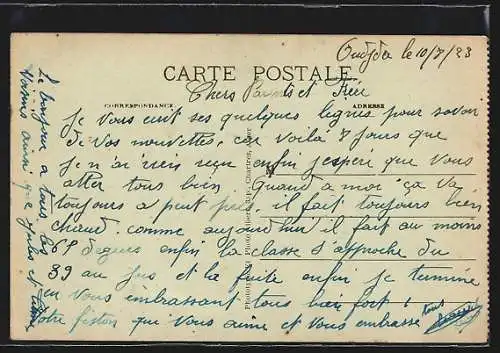 Oudjda le 10/7/23
CARTE POSTALE
CORRESPONDANCE
ADRESSE
Chers Parents et Frère
Je vous ecrit ses quelques lignes pour savoir
de vos nouvelles, car voilà 7 jours que
je n'ai rien reçu enfin j'espere que vous
aller tous bien Quand a moi ça va
toujours a peut près, il fait toujours bien
chaud. comme aujourd'hui il fait au moins
65 degrés enfin la classe s'approche du
39 au jus et la fuite enfin je termine
en vous embrassant tous bien fort!
votre fiston qui vous aime et vous embrasse tous
Le bonjour a tous les
Voisins ainsi que Jules et